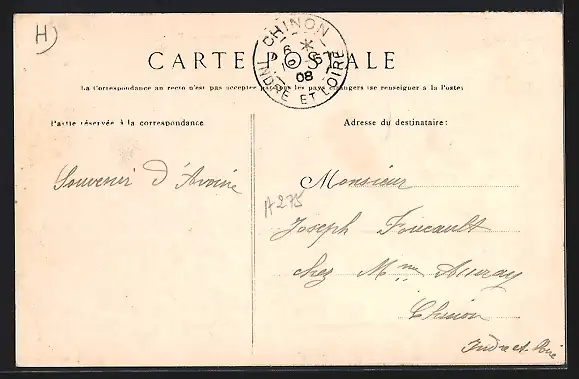 H)
CHINON
6 *
16 -6
08
INDRE ET LOIRE
CARTE POSTALE
La Correspondance au recto n'est pas acceptée par tous les pays étrangers (se renseigner à la Poste)
Partie réservée à la correspondance
Adresse du destinataire:
Souvenir d'Avoine
A 275
Monsieur
Joseph Foucault
chez Mme Auray
Chinon
Indre et Loire